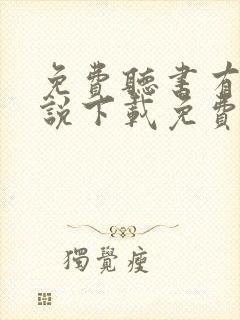 免費聽書有
說下載免費
獨覺瘦